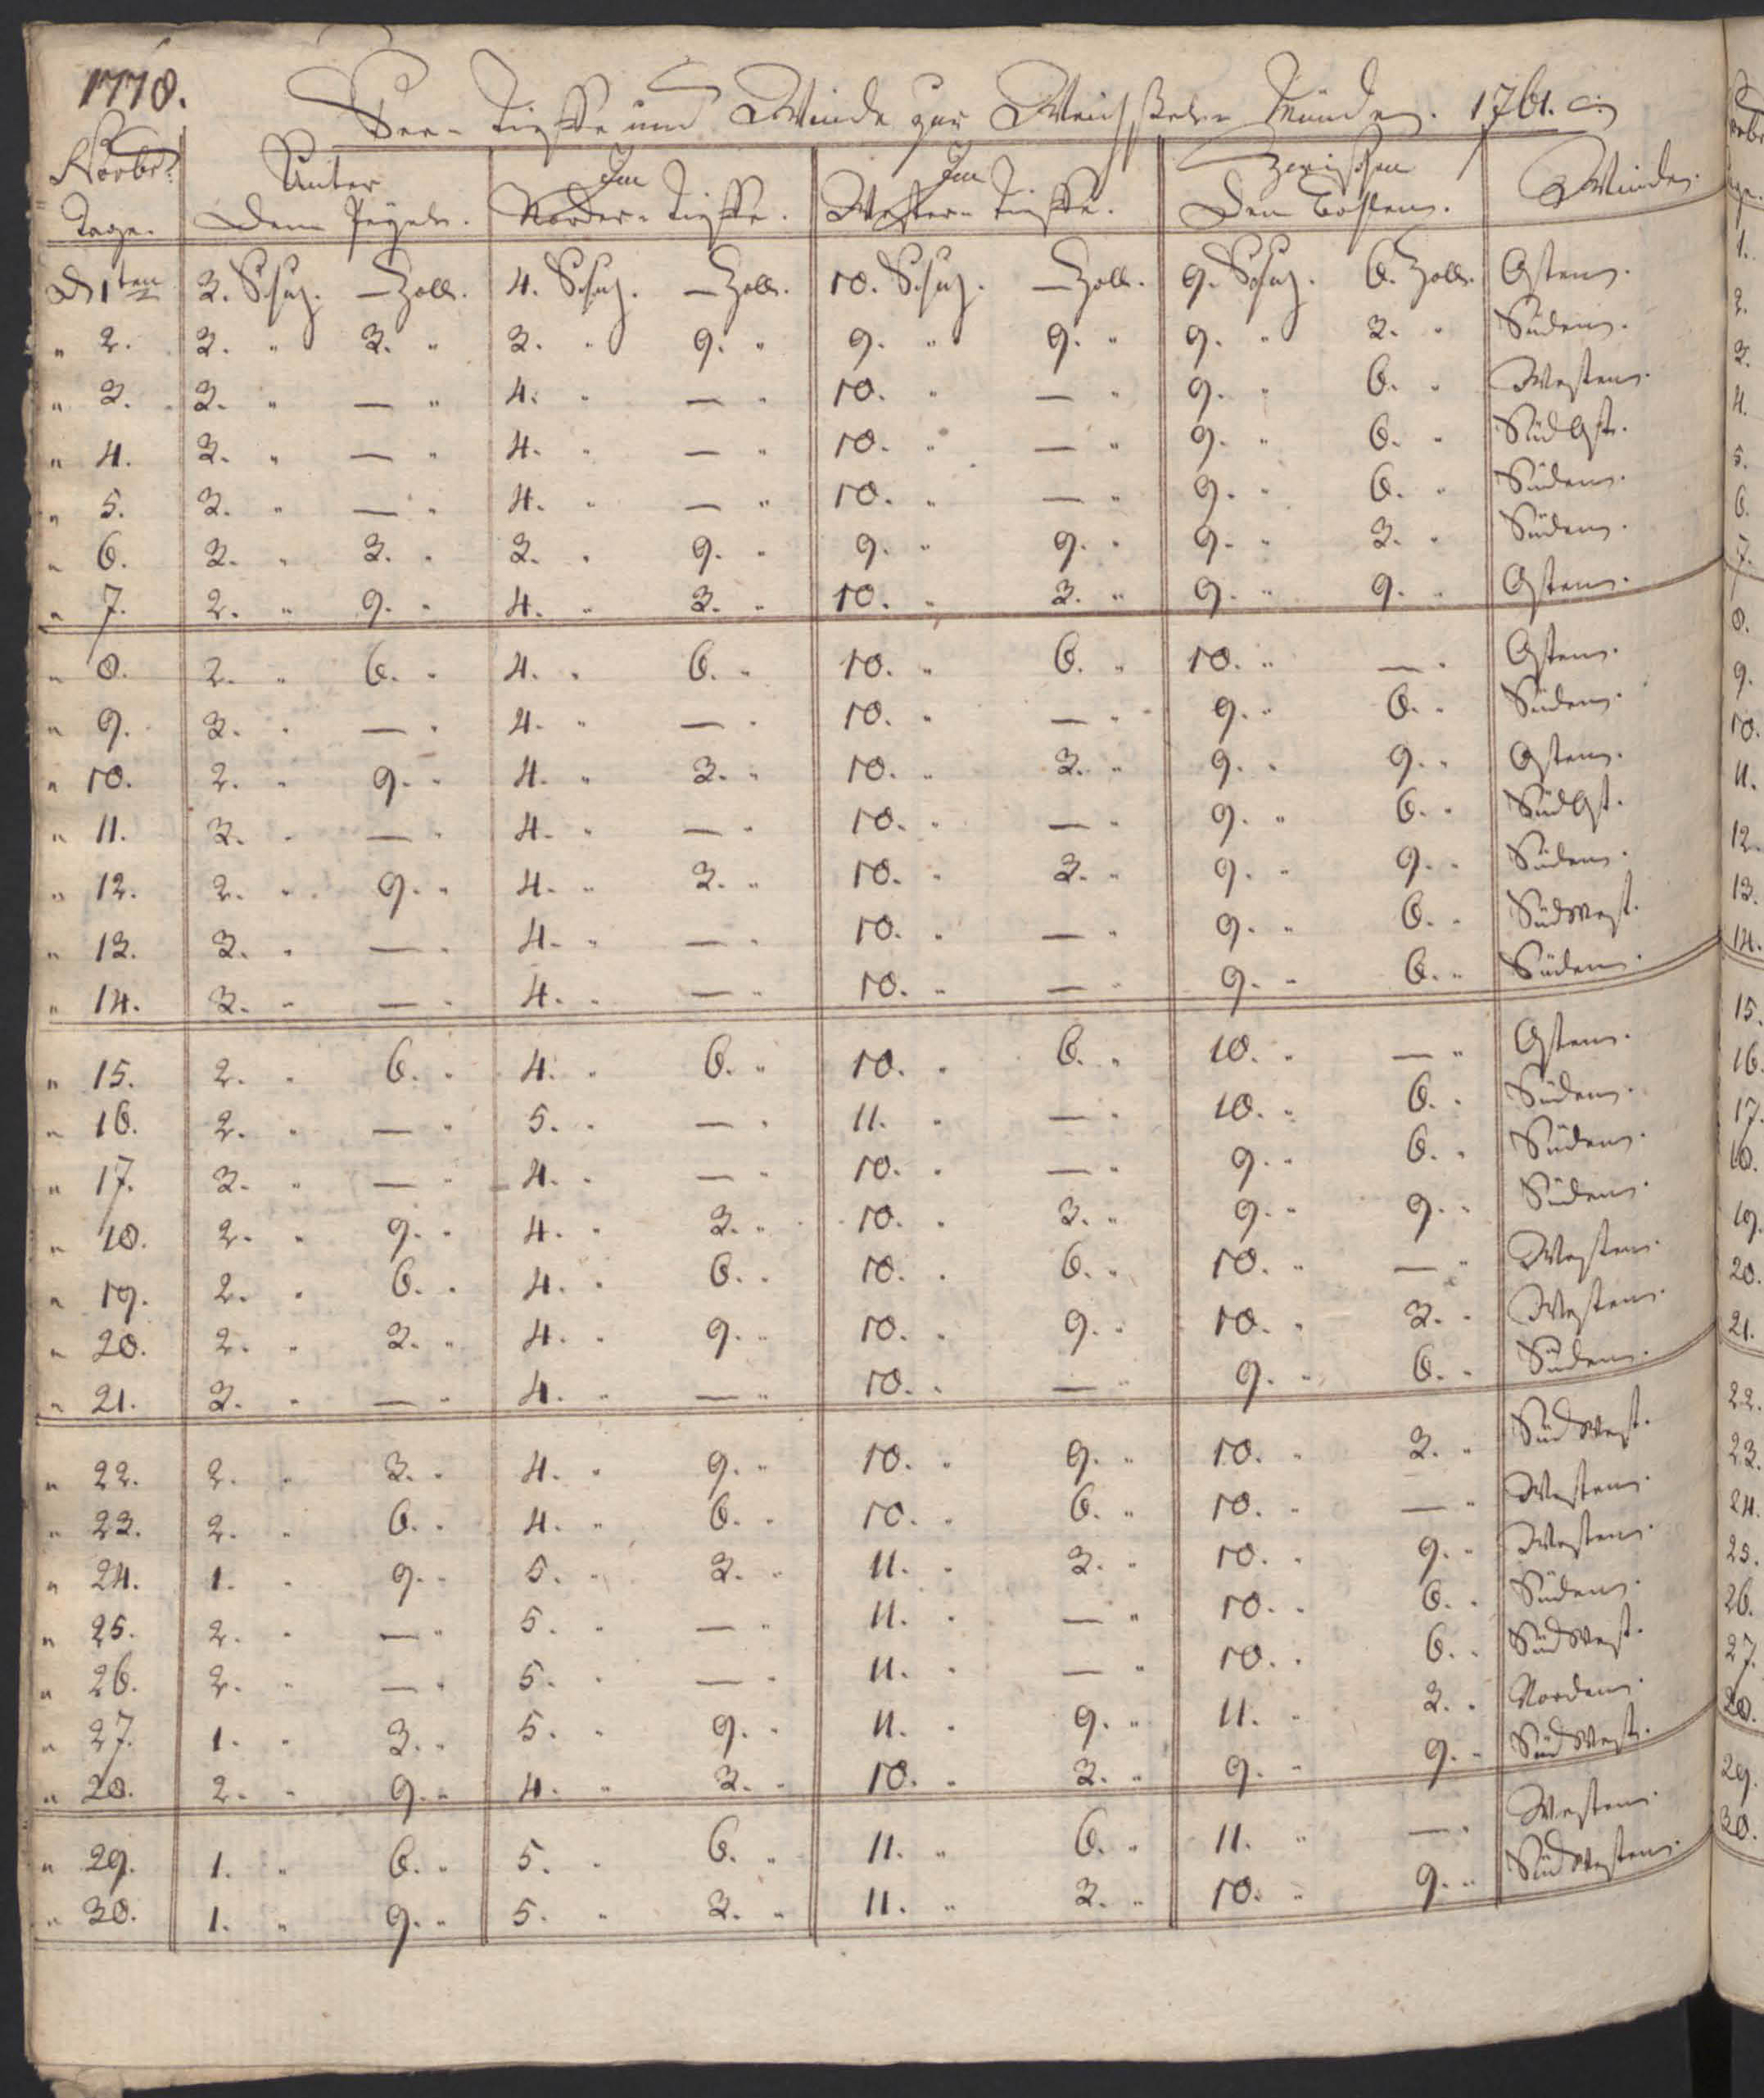 1778.
See-Tieffe und Winde zur Weichsel-Münde. 1761.
Novbr: Unter Im Im Zwischen Winde.
Tage. Dem Pegel. Norder-Tieffe. Wester-Tieffe. Den Bohlen.
D 1ten 3. Schuh. — Zoll. 4. Schuh. — Zoll. 10. Schuh. — Zoll. 9. Schuh. 6. Zoll. Osten.
" 2. 3. " 3. " 3. " 9. " 9. " 9. " 9. " 3. " Süden.
" 3. 3. " — " 4. " — " 10. " — " 9. " 6. " Westen.
" 4. 3. " — " 4. " — " 10. " — " 9. " 6. " SüdOst.
" 5. 3. " — " 4. " — " 10. " — " 9. " 6. " Süden.
" 6. 3. " 3. " 3. " 9. " 9. " 9. " 9. " 3. " Süden.
" 7. 2. " 9. " 4. " 3. " 10. " 3. " 9. " 9. " Osten.
" 8. 2. " 6. " 4. " 6. " 10. " 6. " 10. " — " Osten.
" 9. 3. " — " 4. " — " 10. " — " 9. " 6. " Süden.
" 10. 2. " 9. " 4. " 3. " 10. " 3. " 9. " 9. " Osten.
" 11. 3. " — " 4. " — " 10. " — " 9. " 6. " SüdOst.
" 12. 2. " 9. " 4. " 3. " 10. " 3. " 9. " 9. " Süden.
" 13. 3. " — " 4. " — " 10. " — " 9. " 6. " Südwest.
" 14. 3. " — " 4. " — " 10. " — " 9. " 6. " Süden.
" 15. 2. " 6. " 4. " 6. " 10. " 6. " 10. " — " Osten.
" 16. 2. " — " 5. " — " 11. " — " 10. " 6. " Süden.
" 17. 3. " — " 4. " — " 10. " — " 9. " 6. " Süden.
" 18. 2. " 9. " 4. " 3. " 10. " 3. " 9. " 9. " Süden.
" 19. 2. " 6. " 4. " 6. " 10. " 6. " 10. " — " Westen.
" 20. 2. " 3. " 4. " 9. " 10. " 9. " 10. " 3. " Westen.
" 21. 3. " — " 4. " — " 10. " — " 9. " 6. " Süden.
" 22. 2. " 3. " 4. " 9. " 10. " 9. " 10. " 3. " SüdWest.
" 23. 2. " 6. " 4. " 6. " 10. " 6. " 10. " — " Westen.
" 24. 1. " 9. " 5. " 3. " 11. " 3. " 10. " 9. " Westen.
" 25. 2. " — " 5. " — " 11. " — " 10. " 6. " Süden.
" 26. 2. " — " 5. " — " 11. " — " 10. " 6. " SüdWest.
" 27. 1. " 3. " 5. " 9. " 11. " 9. " 11. " 3. " Norden.
" 28. 2. " 9. " 4. " 3. " 10. " 3. " 9. " 9. " SüdWest.
" 29. 1. " 6. " 5. " 6. " 11. " 6. " 11. " — " Westen.
" 30. 1. " 9. " 5. " 3. " 11. " 3. " 10. " 9. " SüdWesten.
1.
2.
3.
4.
5.
6.
7.
8.
9.
10.
11.
12.
13.
14.
15.
16.
17.
18.
19.
20.
21.
22.
23.
24.
25.
26.
27.
28.
29.
30.